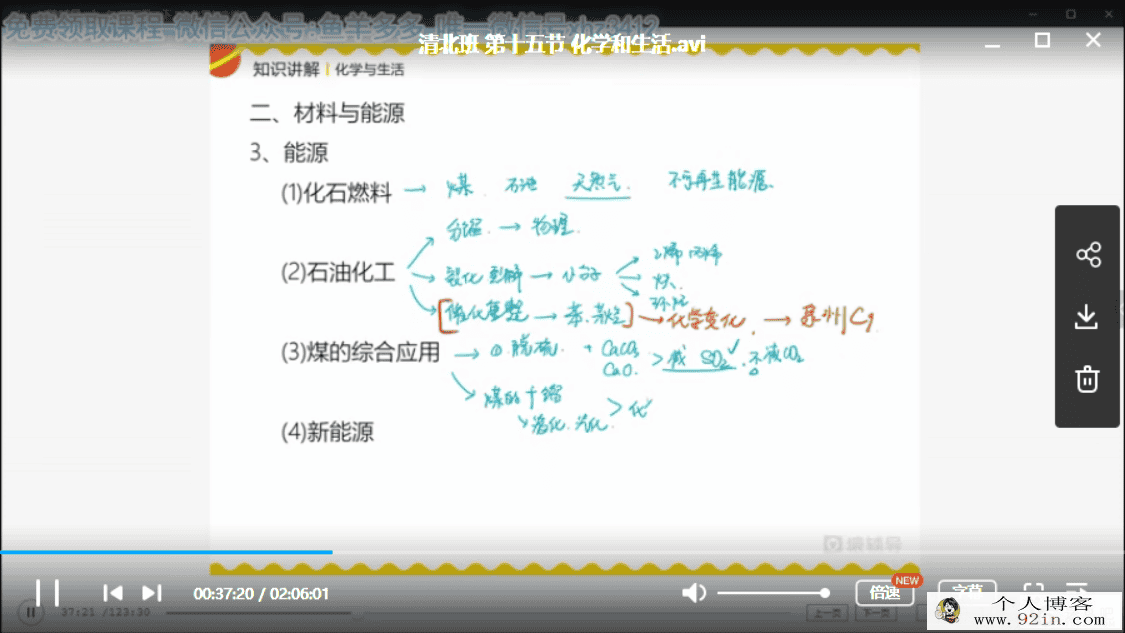 免费领取课程-微信公众号:鱼羊多多
清北班 第十五节 化学和生活.avi
知识讲解 | 化学与生活
二、材料与能源
3、能源
(1)化石燃料 → 煤. 石油 天然气. 不可再生能源.
分馏. → 物理.
(2)石油化工
裂化 裂解 → 小分子
乙烯 丙烯
[催化重整 → 苯.
] → 化学变化. →
(3)煤的综合应用 → ① 脱硫. + CaCO3
CaO. > 减 SO2 ✓. 不减CO2
煤的干馏
液化. 气化. > 化
(4)新能源
猿辅导
00:37:20 / 02:06:01
倍速
NEW
字幕
37:21 /123:30
上一页
下一页
个人博客
www.92in.com